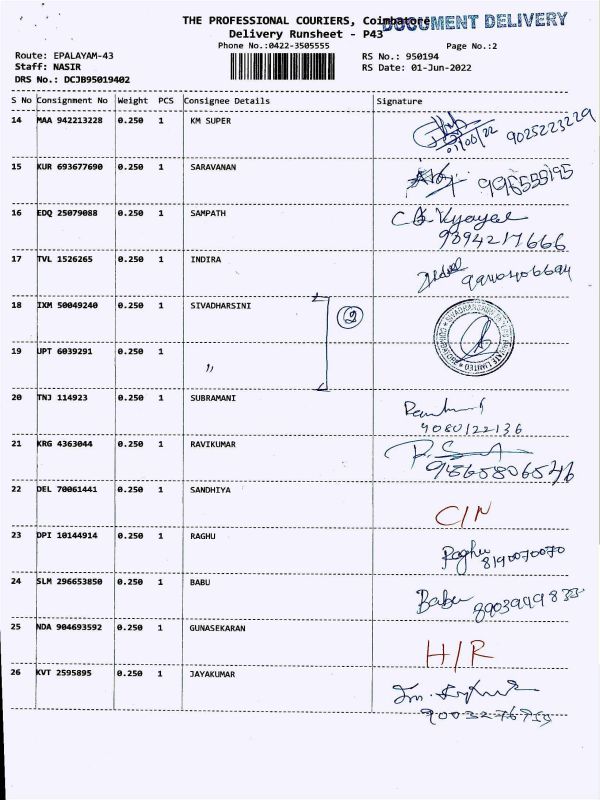 THE PROFESSIONAL COURIERS, Coimbatore DOCUMENT DELIVERY
Delivery Runsheet - P43
Phone No.:0422-3505555
Page No.:2
Route: EPALAYAM-43
RS No.: 950194
Staff: NASIR
RS Date: 01-Jun-2022
DRS No.: DCJB95019402
S No Consignment No Weight PCS Consignee Details Signature
14 MAA 942213228 0.250 1 KM SUPER
9025223229
15 KUR 693677690 0.250 1 SARAVANAN
16 EDQ 25079088 0.250 1 SAMPATH
9394217666
17 TVL 1526265 0.250 1 INDIRA
18 IXM 50049240 0.250 1 SIVADHARSINI
2
19 UPT 6039291 0.250 1 "
20 TNJ 114923 0.250 1 SUBRAMANI
21 KRG 4363044 0.250 1 RAVIKUMAR
9865806546
22 DEL 70061441 0.250 1 SANDHIYA
C/N
23 DPI 10144914 0.250 1 RAGHU
Raghu
8190070070
24 SLM 296653850 0.250 1 BABU
Babu 8903949833
25 NDA 904693592 0.250 1 GUNASEKARAN
H/R
26 KVT 2595895 0.250 1 JAYAKUMAR